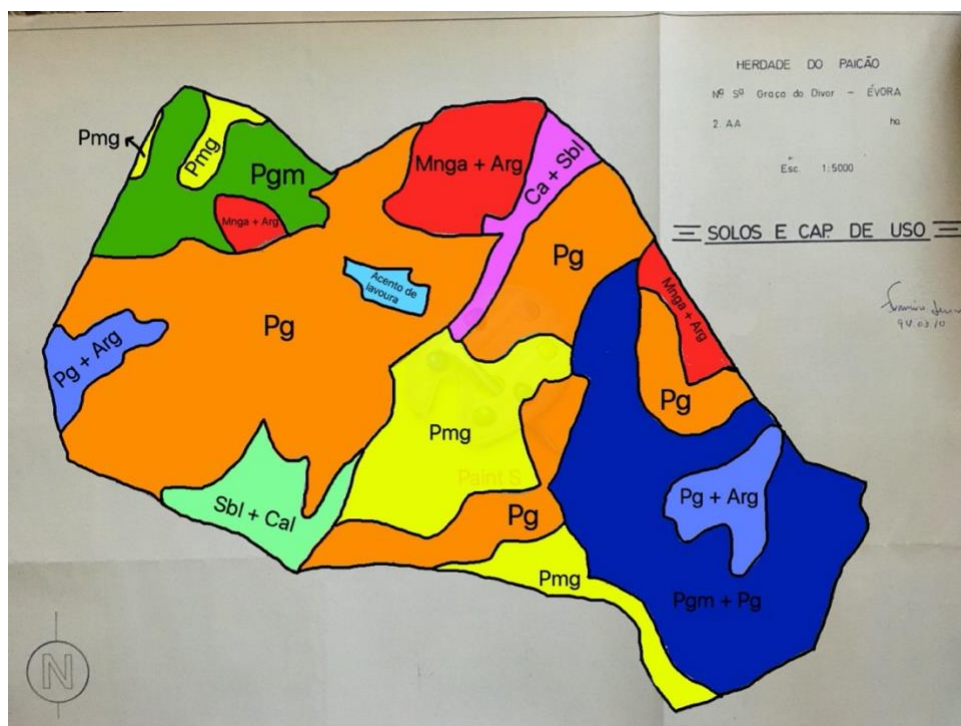 HERDADE DO PAICÃO
Nª Sª Graça do Divor - ÉVORA
2. AA ha
Esc. 1:5000
SOLOS E CAP. DE USO
94.03.10
Pmg
Pmg
Pgm
Mnga + Arg
Mnga + Arg
Ca + Sbl
Pg
Acento de
lavoura
Pg
Mnga + Arg
Pg + Arg
Pg
Pmg
Paint S
Sbl + Cal
Pg
Pg + Arg
Pmg
Pgm + Pg
N